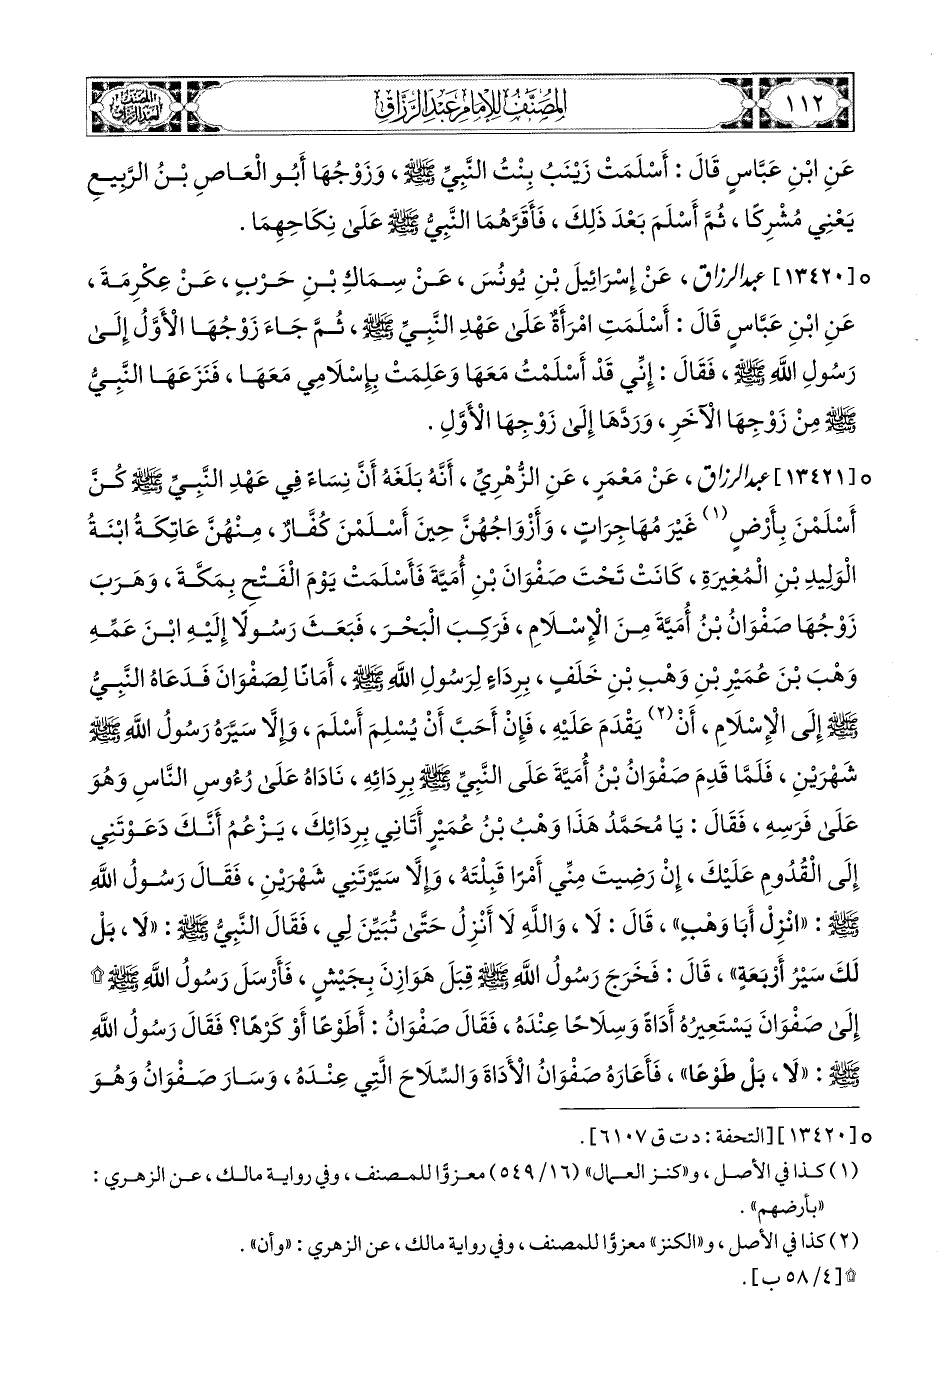 ١١٢
المصنف للإمام عبد الرزاق
المصنف لعبد الرزاق
عَنِ ابْنِ عَبَّاسٍ قَالَ : أَسْلَمَتْ زَيْنَبُ بِنْتُ النَّبِيِّ ﷺ ، وَزَوْجُهَا أَبُو الْعَاصِ بْنُ الرَّبِيعِ
يَعْنِي مُشْرِكًا ، ثُمَّ أَسْلَمَ بَعْدَ ذَلِكَ ، فَأَقَرَّهُمَا النَّبِيُّ ﷺ عَلَىٰ نِكَاحِهِمَا .
٥ [١٣٤٢٠] عبد الرزاق ، عَنْ إِسْرَائِيلَ بْنِ يُونُسَ ، عَنْ سِمَاكِ بْنِ حَرْبٍ ، عَنْ عِكْرِمَةَ ،
عَنِ ابْنِ عَبَّاسٍ قَالَ : أَسْلَمَتِ امْرَأَةٌ عَلَىٰ عَهْدِ النَّبِيِّ ﷺ ، ثُمَّ جَاءَ زَوْجُهَا الْأَوَّلُ إِلَىٰ
رَسُولِ اللَّهِ ﷺ ، فَقَالَ : إِنِّي قَدْ أَسْلَمْتُ مَعَهَا وَعَلِمَتْ بِإِسْلَامِي مَعَهَا ، فَنَزَعَهَا النَّبِيُّ
ﷺ مِنْ زَوْجِهَا الْآخَرِ ، وَرَدَّهَا إِلَىٰ زَوْجِهَا الْأَوَّلِ .
٥ [١٣٤٢١] عبد الرزاق ، عَنْ مَعْمَرٍ ، عَنِ الزُّهْرِيِّ ، أَنَّهُ بَلَغَهُ أَنَّ نِسَاءً فِي عَهْدِ النَّبِيِّ ﷺ كُنَّ
أَسْلَمْنَ بِأَرْضٍ (١) غَيْرَ مُهَاجِرَاتٍ ، وَأَزْوَاجُهُنَّ حِينَ أَسْلَمْنَ كُفَّارٌ ، مِنْهُنَّ عَاتِكَةُ ابْنَةُ
الْوَلِيدِ بْنِ الْمُغِيرَةِ ، كَانَتْ تَحْتَ صَفْوَانَ بْنِ أُمَيَّةَ فَأَسْلَمَتْ يَوْمَ الْفَتْحِ بِمَكَّةَ ، وَهَرَبَ
زَوْجُهَا صَفْوَانُ بْنُ أُمَيَّةَ مِنَ الْإِسْلَامِ ، فَرَكِبَ الْبَحْرَ ، فَبَعَثَ رَسُولًا إِلَيْهِ ابْنَ عَمِّهِ
وَهْبَ بْنَ عُمَيْرِ بْنِ وَهْبِ بْنِ خَلَفٍ ، بِرِدَاءٍ لِرَسُولِ اللَّهِ ﷺ ، أَمَانًا لِصَفْوَانَ فَدَعَاهُ النَّبِيُّ
ﷺ إِلَى الْإِسْلَامِ ، أَنْ (٢) يَقْدَمَ عَلَيْهِ ، فَإِنْ أَحَبَّ أَنْ يُسْلِمَ أَسْلَمَ ، وَإِلَّا سَيَّرَهُ رَسُولُ اللَّهِ ﷺ
شَهْرَيْنِ ، فَلَمَّا قَدِمَ صَفْوَانُ بْنُ أُمَيَّةَ عَلَى النَّبِيِّ ﷺ بِرِدَائِهِ ، نَادَاهُ عَلَىٰ رُءُوسِ النَّاسِ وَهُوَ
عَلَىٰ فَرَسِهِ ، فَقَالَ : يَا مُحَمَّدُ هَذَا وَهْبُ بْنُ عُمَيْرٍ أَتَانِي بِرِدَائِكَ ، يَزْعُمُ أَنَّكَ دَعَوْتَنِي
إِلَى الْقُدُومِ عَلَيْكَ ، إِنْ رَضِيتَ مِنِّي أَمْرًا قَبِلْتَهُ ، وَإِلَّا سَيَّرْتَنِي شَهْرَيْنِ ، فَقَالَ رَسُولُ اللَّهِ
ﷺ : «انْزِلْ أَبَا وَهْبٍ» ، قَالَ : لَا ، وَاللَّهِ لَا أَنْزِلُ حَتَّىٰ تُبَيِّنَ لِي ، فَقَالَ النَّبِيُّ ﷺ : «لَا ، بَلْ
لَكَ سَيْرُ أَرْبَعَةٍ» ، قَالَ : فَخَرَجَ رَسُولُ اللَّهِ ﷺ قِبَلَ هَوَازِنَ بِجَيْشٍ ، فَأَرْسَلَ رَسُولُ اللَّهِ ﷺ ۩
إِلَىٰ صَفْوَانَ يَسْتَعِيرُهُ أَدَاةً وَسِلَاحًا عِنْدَهُ ، فَقَالَ صَفْوَانُ : أَطَوْعًا أَوْ كَرْهًا؟ فَقَالَ رَسُولُ اللَّهِ
ﷺ : «لَا ، بَلْ طَوْعًا» ، فَأَعَارَهُ صَفْوَانُ الْأَدَاةَ وَالسِّلَاحَ الَّتِي عِنْدَهُ ، وَسَارَ صَفْوَانُ وَهُوَ
٥ [١٣٤٢٠] [التحفة : د ت ق ٦١٠٧] .
(١) كذا في الأصل ، و«كنز العمال» (١٦/ ٥٤٩) معزوًّا للمصنف ، وفي رواية مالك ، عن الزهري :
«بأرضهم» .
(٢) كذا في الأصل ، و«الكنز» معزوًّا للمصنف ، وفي رواية مالك ، عن الزهري : «وأن» .
۩ [٤/ ٥٨ ب] .